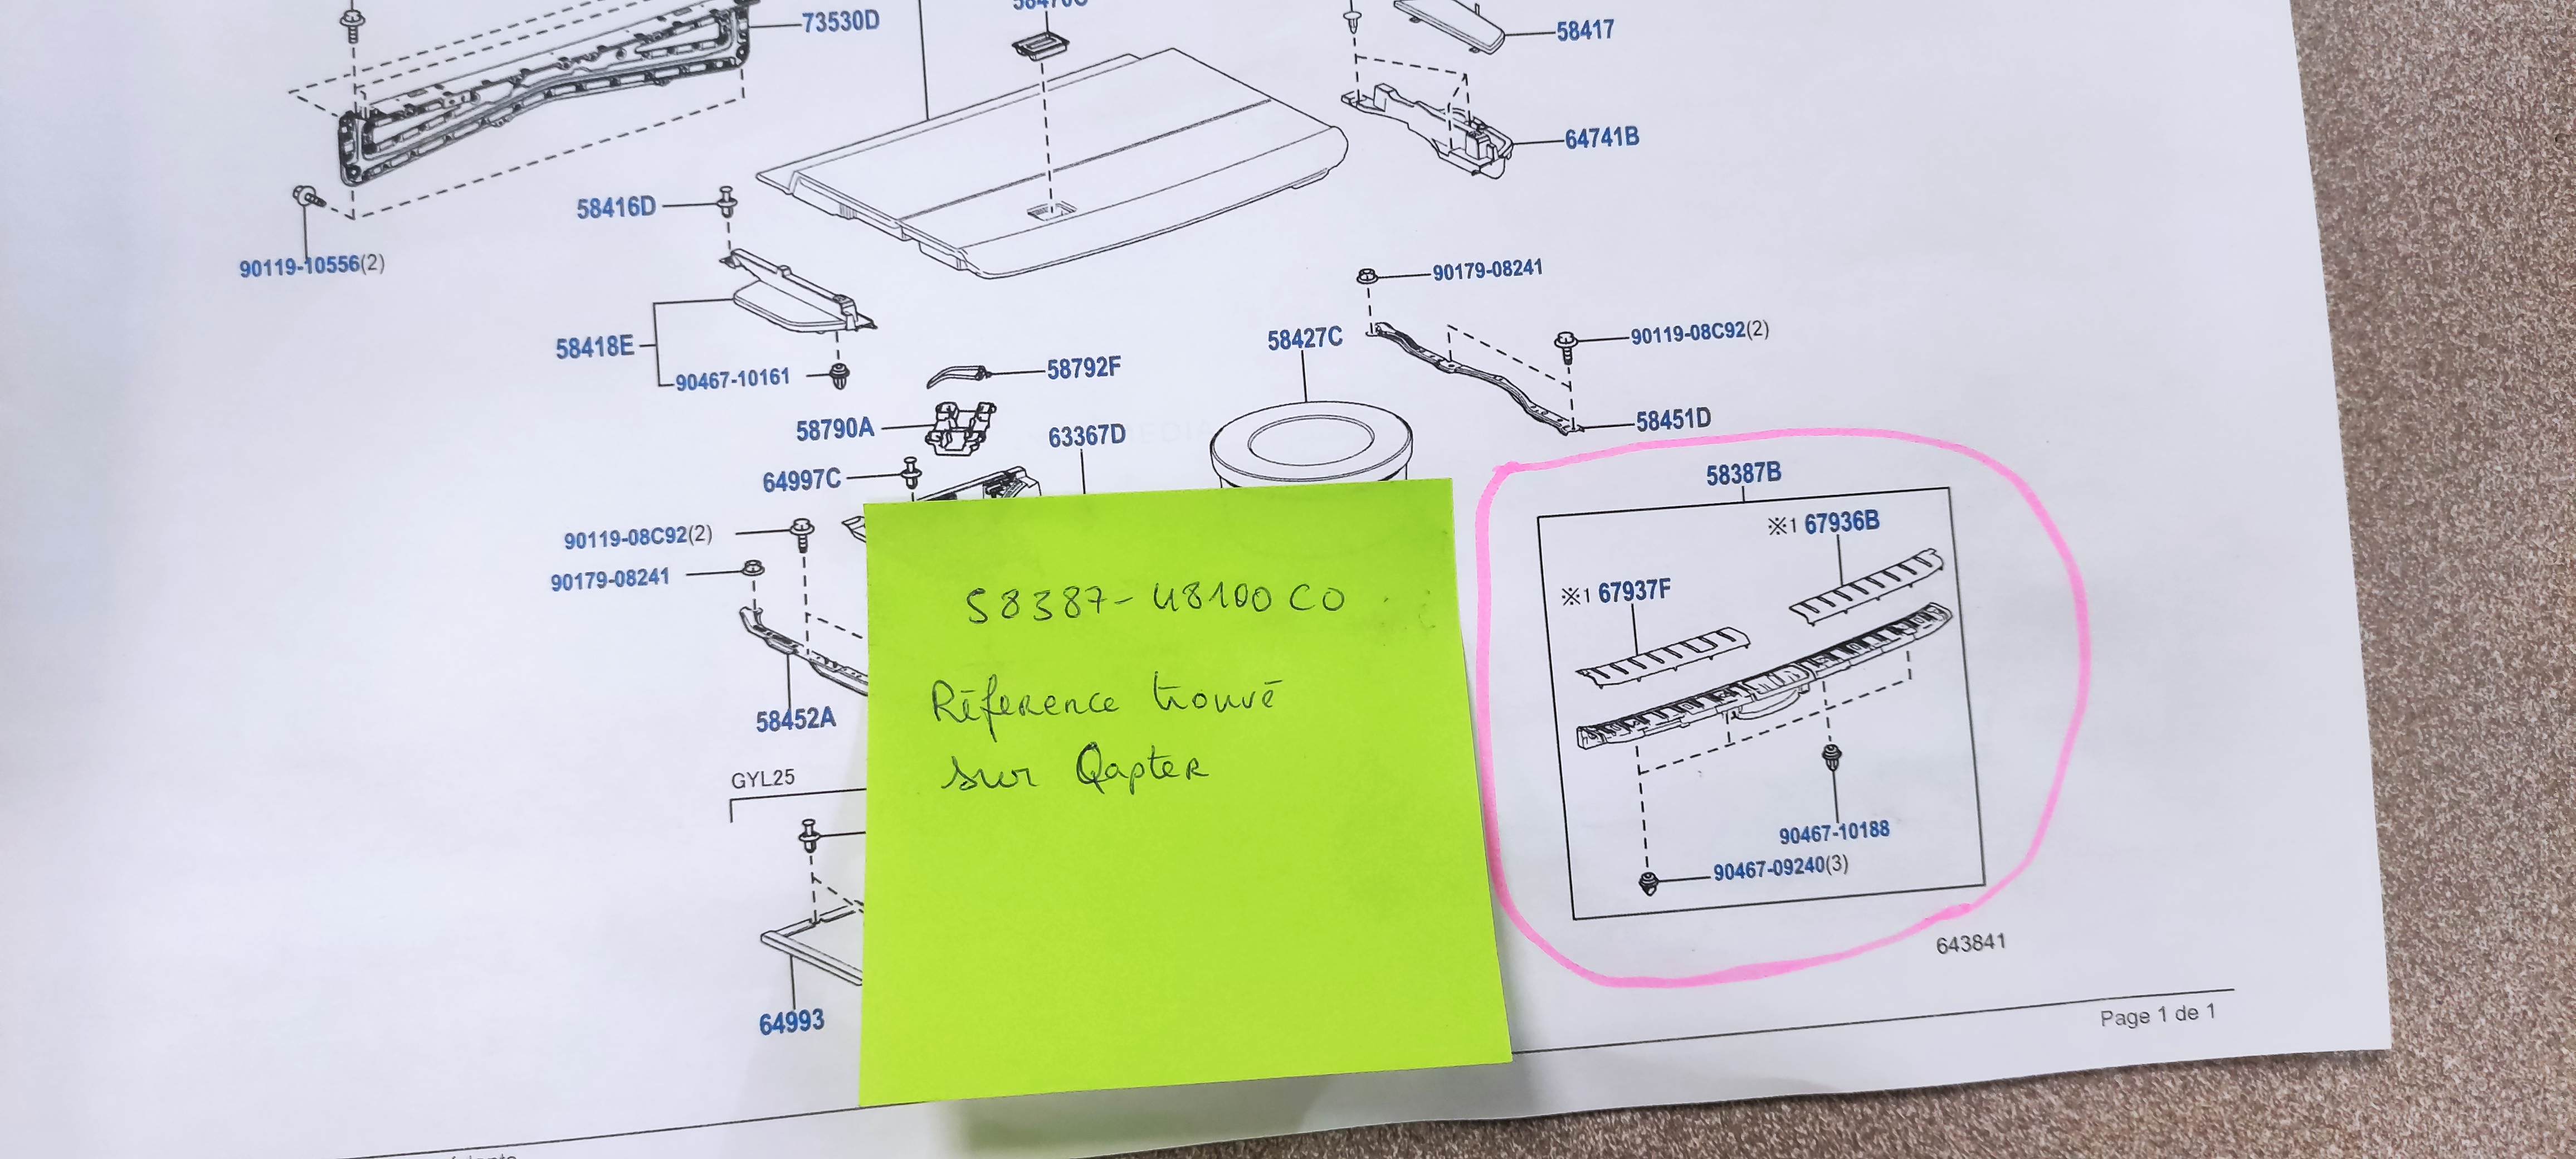 73530D
58417
64741B
58416D
90119-10556(2)
90179-08241
58418E
58427C
90119-08C92(2)
90467-10161
58792F
58790A
63367D
58451D
64997C
58387B
90119-08C92(2)
※1 67936B
90179-08241
※1 67937F
58387-48100 C0
Réference trouvé
sur Qapter
58452A
GYL25
90467-10188
90467-09240(3)
643841
64993
Page 1 de 1